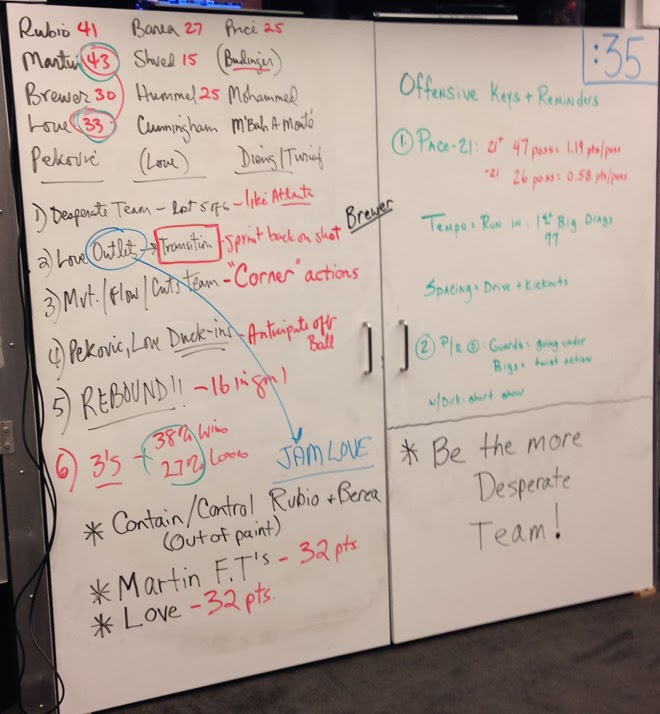 Rubio 41 Barea 27 Price 25
Martin 43 Shved 15 (Budinger)
Brewer 30 Hummel 25 Mohammed
Love 33 Cunningham M'Bah A Moute
Pekovic (Love) Dieng/Turiaf
1) Desperate Team - Lost 5 of 6 - like Atlanta
2) Love Outlets → Transition - sprint back on shot
Brewer
3) Mvt./Flow/Cuts Team - "Corner" actions
4) Pekovic, Love Duck-ins - Anticipate off Ball
5) REBOUND!! - 16 in gm 1
6) 3's 38% Wins
27% Loses
JAM LOVE
* Contain/Control Rubio + Berea
(Out of paint)
* Martin F.T's - 32 pts.
* Love - 32 pts.
:35
Offensive Keys + Reminders
① Pace-21: 21+ 47 poss = 1.19 pts/poss
-21 26 poss = 0.58 pts/poss
Tempo = Run in: 1st Big Drags
77
Spacing = Drive + Kickouts
② P/R Guards = going under
Bigs = twist action
w/Dirk: short show
* Be the more
Desperate
Team!